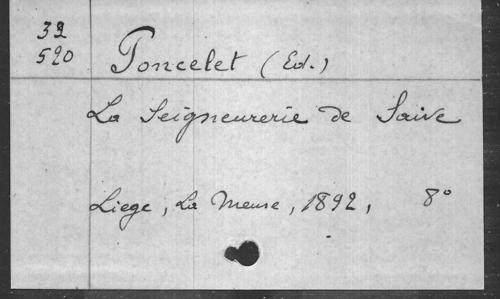 32
520
Poncelet (Ed.)
La Seigneurerie de Saive
Liege, La Meuse, 1892, 8°